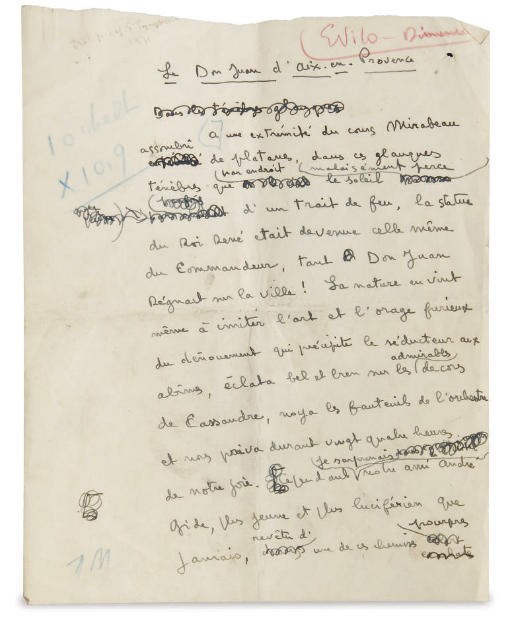 Evilo - Dimanche
Le Don Juan d'Aix-en-Provence
10 ctelt
x 10,9
A une extrémité du cours Mirabeau
assombri de platanes, dans ces glauques
ténèbres que par endroit malaisément perce le soleil
d'un trait de feu, la statue
du Roi René était devenue celle même
du Commandeur, tant Don Juan
Régnait sur la ville ! La nature en vint
même à imiter l'art et l'orage furieux
du dénouement qui précipite le séducteur aux
abîmes, éclata bel et bien sur les admirables décors
de Cassandre, noya les fauteuils de l'orchestre
et nous priva durant vingt quatre heures
de notre joie. Cependant je surprenais notre ami André
Gide, plus jeune et plus luciférien que
jamais, revêtu d'une de ces chemises pourpres